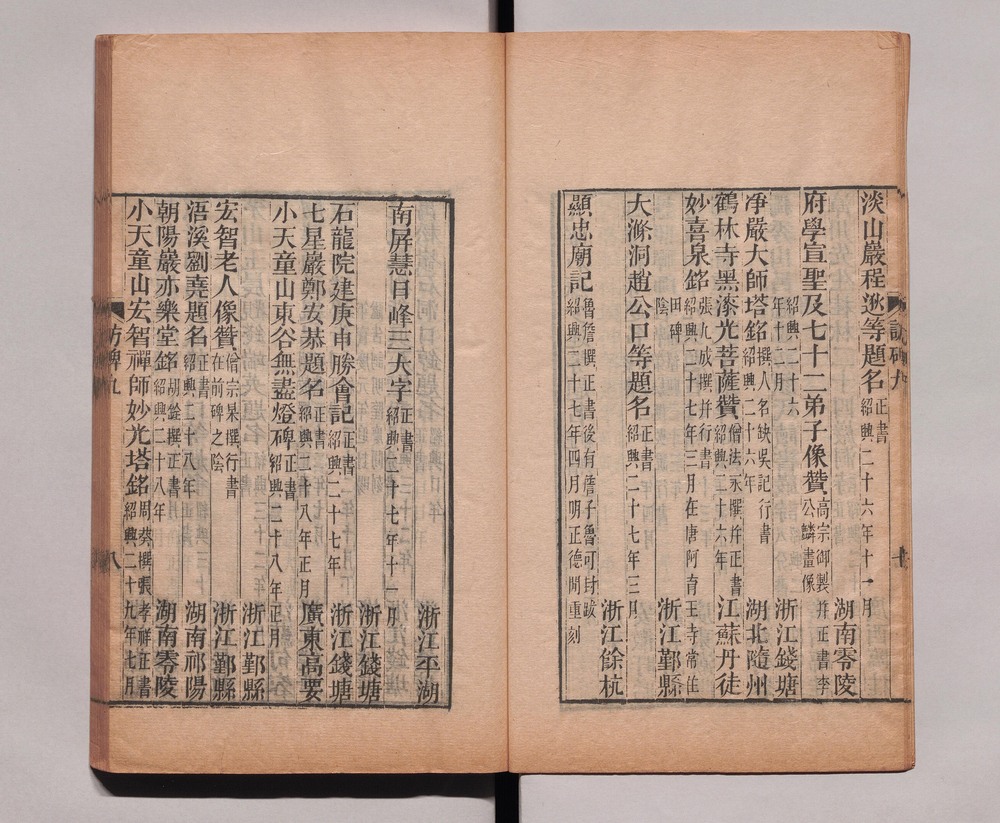 淡山巖程逖等題名 正書 紹興二十六年十一月 湖南零陵
府學宣聖及七十二弟子像贊 高宗御製并正書李公麟畫像
紹興二十六年十二月 浙江錢塘
凈嚴大師塔銘 撰人名缺吳記行書 紹興二十六年 湖北隨州
鶴林寺黑漆光菩薩贊 僧法永撰并正書 紹興二十六年 江蘇丹徒
妙喜泉銘 張九成撰并行書 紹興二十七年三月在唐阿育王寺常住
田碑陰 浙江鄞縣
大滌洞趙公口等題名 正書 紹興二十七年三月
浙江餘杭
顯忠廟記 魯詹撰正書後有詹子魯可封跋 紹興二十七年四月明正德閒重刻
浙江平湖
南屏慧日峰三大字 正書 紹興二十七年十一月
浙江錢塘
石龍院建庚申勝會記 正書 紹興二十七年 浙江錢塘
七星巖鄭安恭題名 正書 紹興二十八年正月 廣東高要
小天童山東谷無盡燈碑 正書 紹興二十八年正月
浙江鄞縣
宏智老人像贊 僧宗杲撰行書 在前碑之陰 浙江鄞縣
浯溪劉堯題名 正書 紹興二十八年 湖南祁陽
朝陽巖亦樂堂銘 胡銓撰正書 紹興二十八年 湖南零陵
小天童山宏智禪師妙光塔銘 周葵撰張孝祥正書 紹興二十九年七月
訪碑九 八